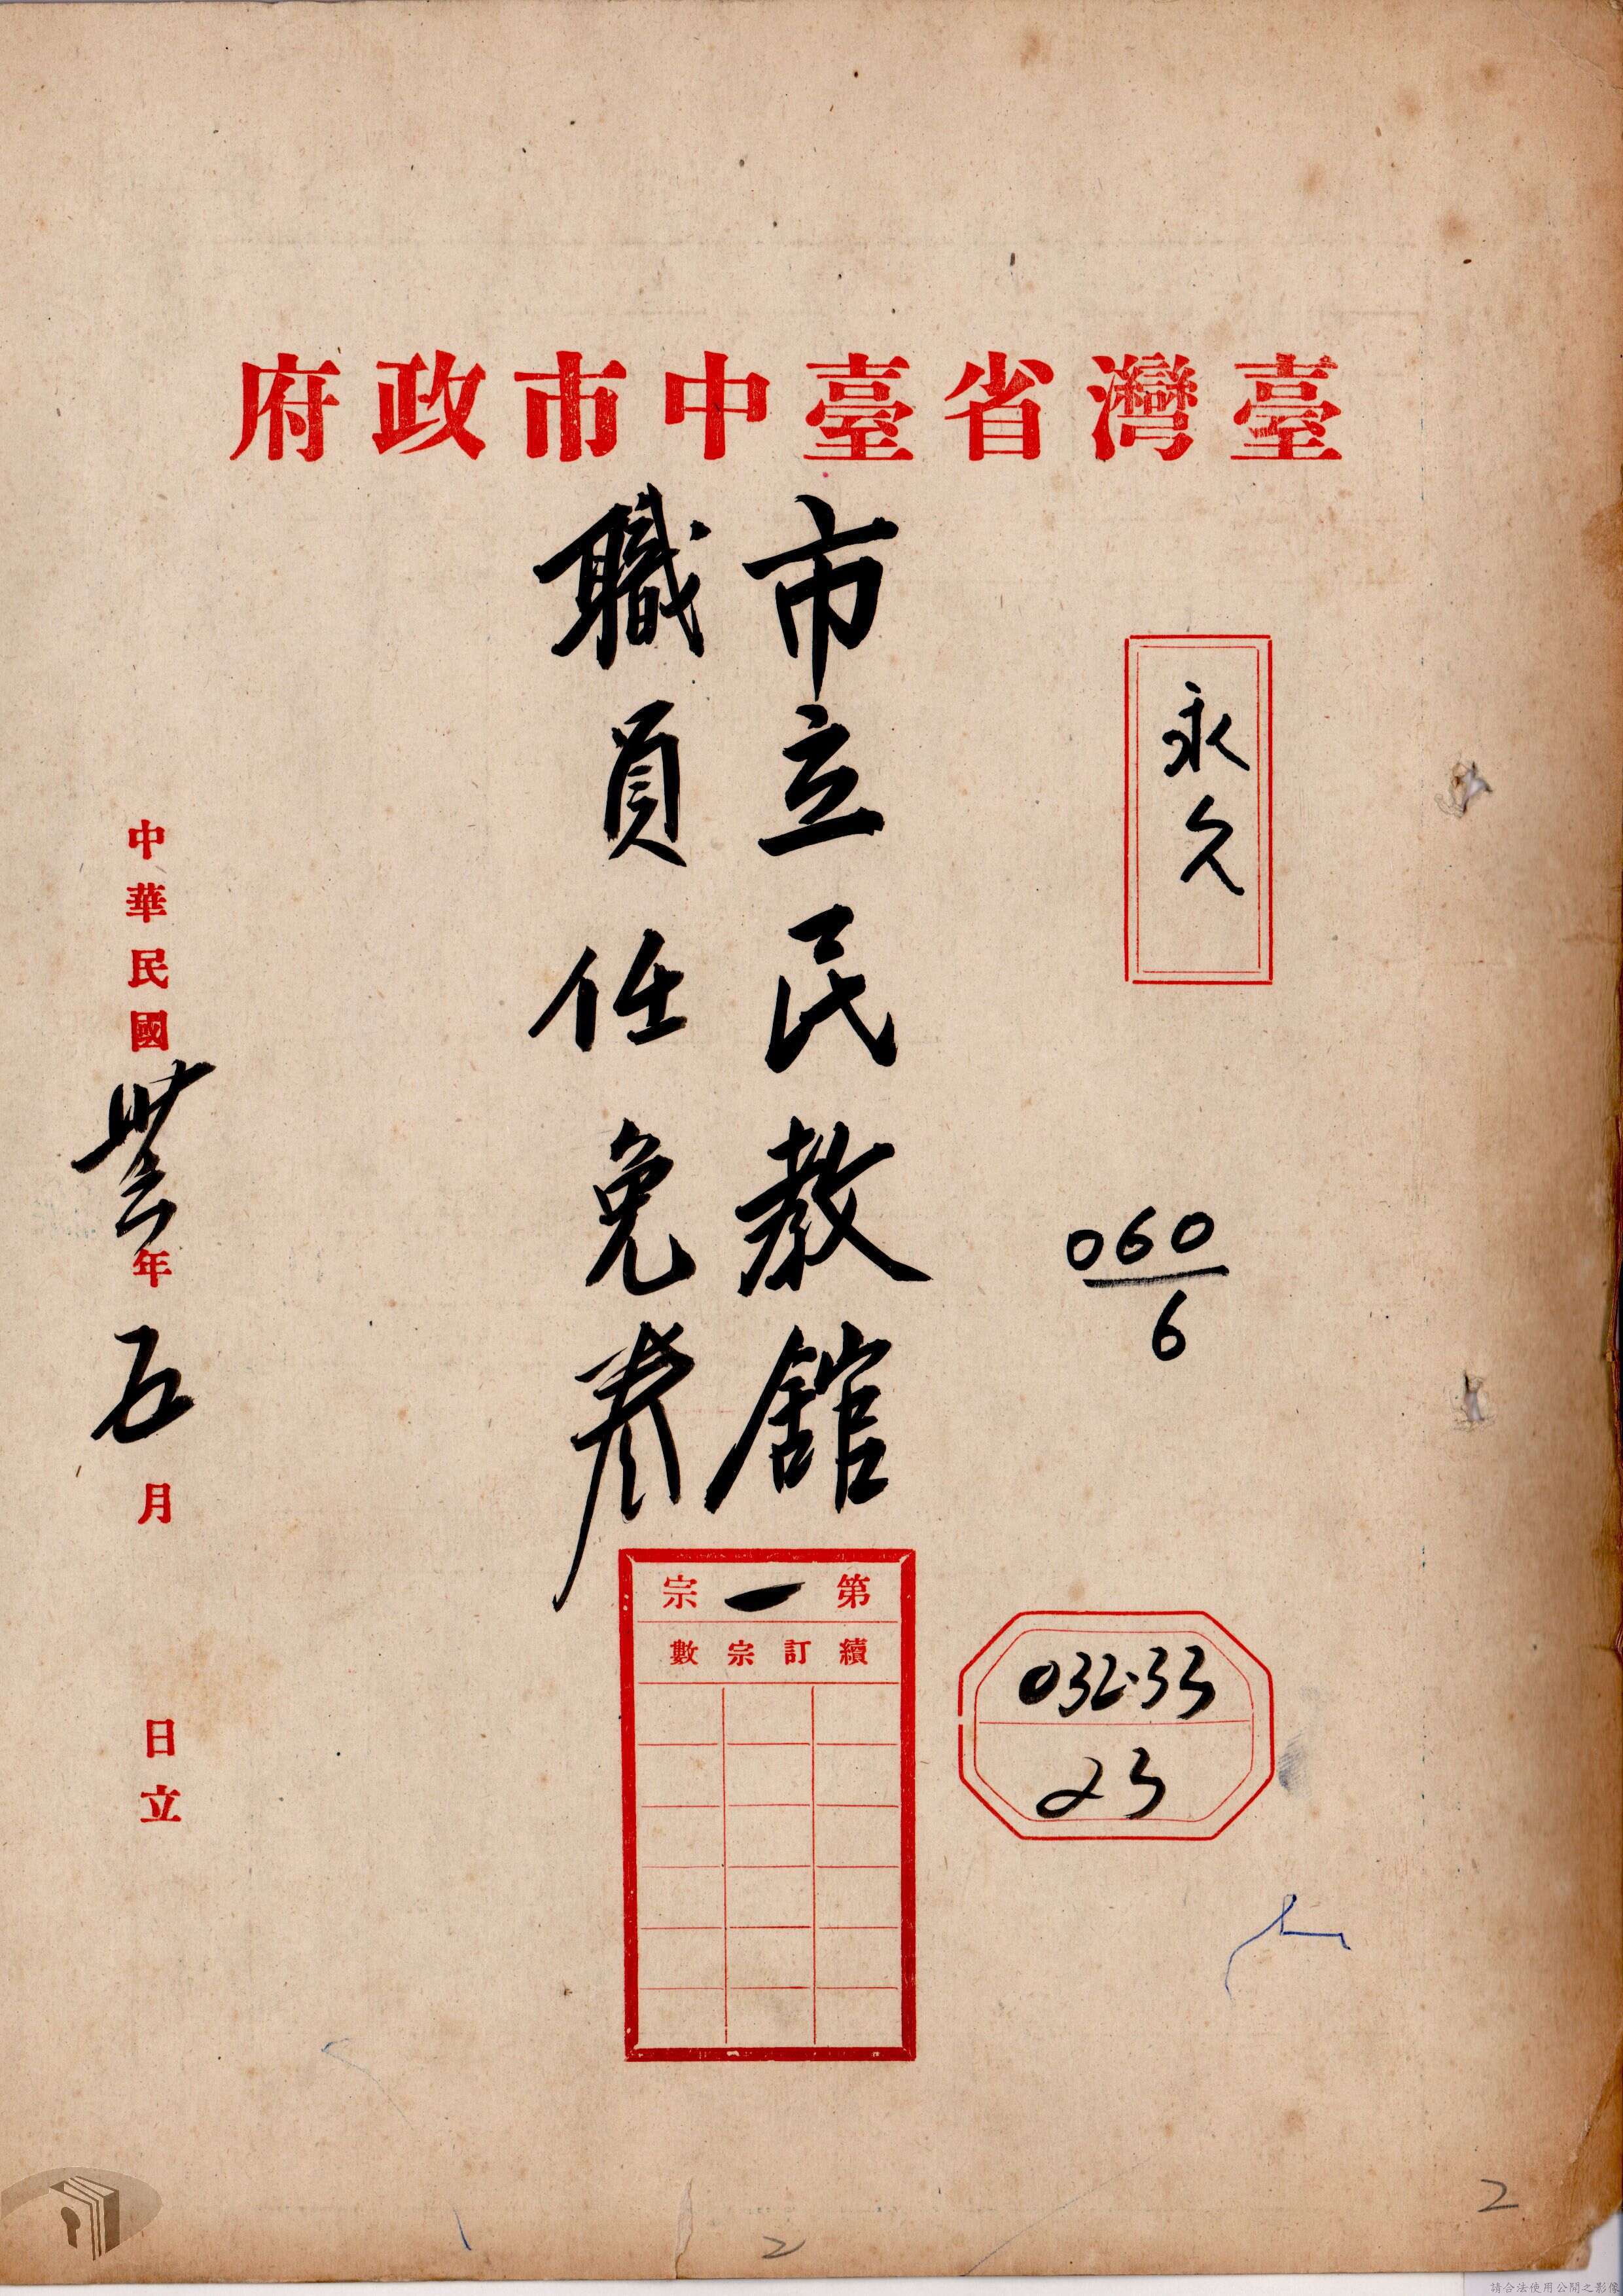 臺灣省臺中市政府
永久
060
6
市立民教館
職員任免卷
第一宗
續訂宗數
032.33
23
中華民國 年五月 日立
2
2
請合法使用公開之影像